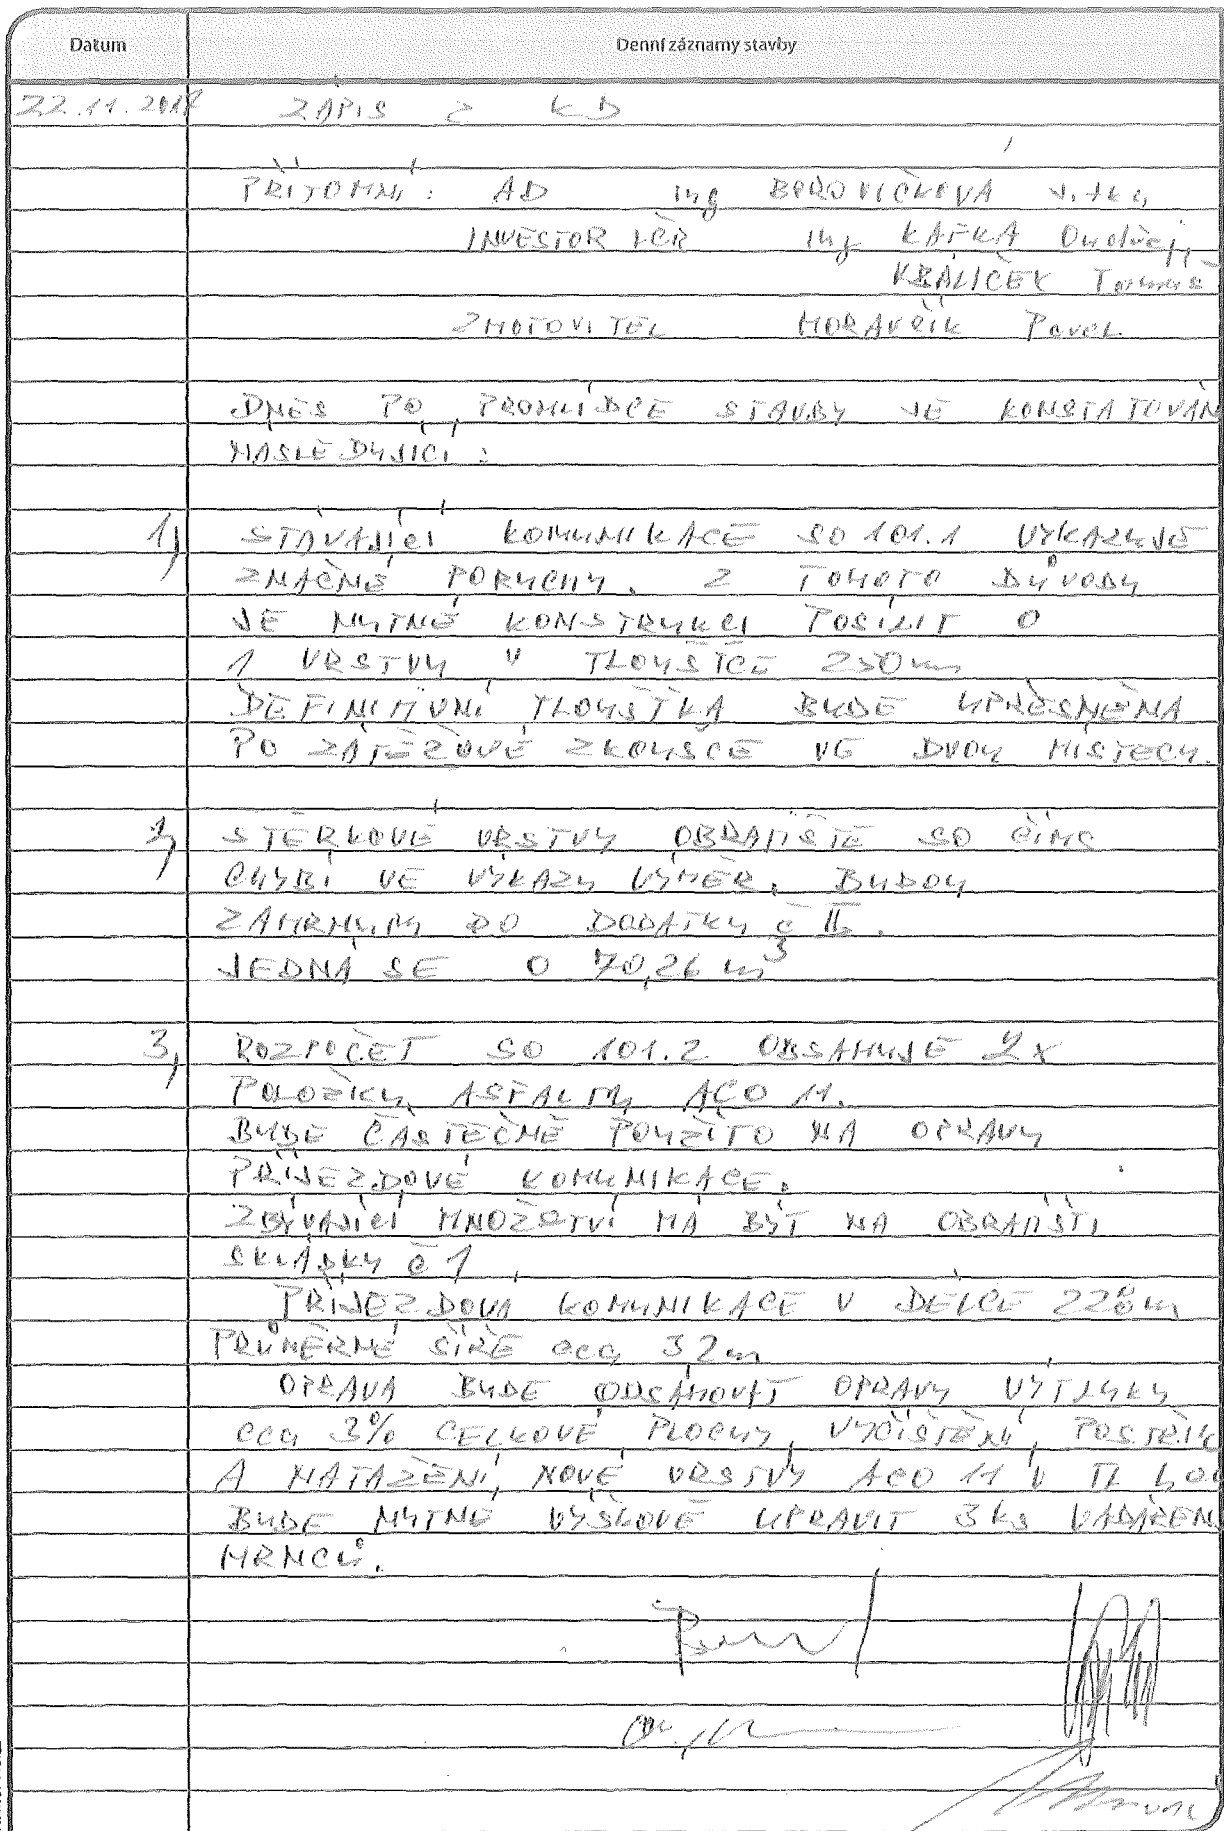 Datum
Denní záznamy stavby
22.11.2017 ZÁPIS Z KD
PŘÍTOMNÍ: AD ing BOROVIČKOVÁ Jitka
INVESTOR LČR ing KAFKA Ondřej,
KRÁLÍČEK Tomáš
ZHOTOVITEL MORAVČÍK Pavel
DNES PO PROHLÍDCE STAVBY JE KONSTATOVÁN
NÁSLEDUJÍCÍ:
1) STÁVAJÍCÍ KOMUNIKACE SO 101.1 VYKAZUJE
ZNAČNÉ PORUCHY. Z TOHOTO DŮVODU
JE NUTNÉ KONSTRUKCI POSÍLIT O
1 VRSTVU V TLOUŠŤCE 250mm
DEFINITIVNÍ TLOUŠŤKA BUDE UPŘESNĚNA
PO ZÁTĚŽOVÉ ZKOUŠCE VE DVOU MÍSTECH.
2) ŠTĚRKOVÉ VRSTVY OBRATIŠTĚ SO
CHYBÍ VE VÝKAZU VÝMĚR. BUDOU
ZAHRNUTY DO DODATKU Č II.
JEDNÁ SE O 70,26 m3
3, ROZPOČET SO 101.2 OBSAHUJE 2x
POLOŽKU ASFALTU ACO 11.
BUDE ČÁSTEČNĚ POUŽITO NA OPRAVU
PŘÍJEZDOVÉ KOMUNIKACE.
ZBÝVAJÍCÍ MNOŽSTVÍ MÁ BÝT NA OBRATIŠTI
SKLÁDKY Č 1
PŘÍJEZDOVÁ KOMUNIKACE V DÉLCE 228m
PRŮMĚRNÉ ŠÍŘE cca 3,2m
OPRAVA BUDE OBSAHOVAT OPRAVU VÝTLUKŮ
cca 3% CELKOVÉ PLOCHY, VYČIŠTĚNÍ, POSTŘIK
A NATAŽENÍ NOVÉ VRSTVY ACO 11 V TL
BUDE NUTNÉ VÝŠKOVĚ UPRAVIT 3 ks
HRNCŮ.